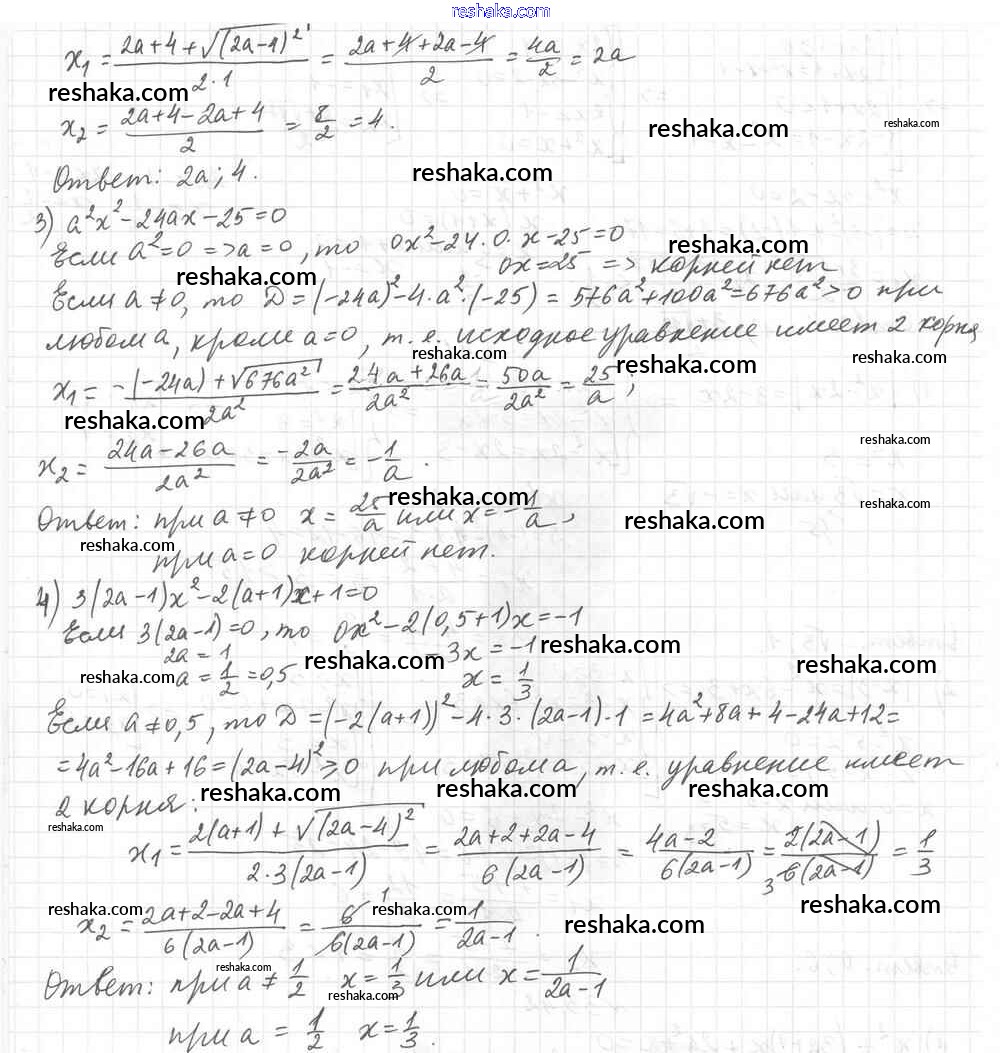 reshaka.com
x₁ = (2a+4+√(2a-4)²)/(2·1) = (2a+4+2a-4)/2 = 4a/2 = 2a
reshaka.com
x₂ = (2a+4-2a+4)/2 = 8/2 = 4.
reshaka.com reshaka.com
reshaka.com
Ответ: 2a; 4.
3) a²x²-24ax-25=0
Если a²=0 => a=0, то 0x²-24·0·x-25=0
reshaka.com
reshaka.com
0x=25 => корней нет
Если a≠0, то D=(-24a)²-4·a²·(-25) = 576a²+100a²=676a²>0 при
любом a, кроме a=0, т.е. исходное уравнение имеет 2 корня
reshaka.com reshaka.com
x₁ = (-(-24a)+√676a²)/2a² = (24a+26a)/2a² = 50a/2a² = 25/a;
reshaka.com
reshaka.com
x₂ = (24a-26a)/2a² = -2a/2a² = -1/a.
reshaka.com reshaka.com
Ответ: при a≠0 x = 25/a или x = -1/a,
reshaka.com
reshaka.com
при a=0 корней нет.
4) 3(2a-1)x²-2(a+1)x+1=0
Если 3(2a-1)=0, то 0x²-2(0,5+1)x=-1
2a = 1 -3x = -1
reshaka.com reshaka.com reshaka.com
reshaka.com
a = 1/2 = 0,5 x = 1/3
Если a≠0,5, то D=(-2(a+1))²-4·3·(2a-1)·1 = 4a²+8a+4-24a+12=
=4a²-16a+16=(2a-4)²≥0 при любом a, т.е. уравнение имеет
reshaka.com reshaka.com reshaka.com
2 корня:
reshaka.com
x₁ = (2(a+1)+√(2a-4)²)/(2·3(2a-1)) = (2a+2+2a-4)/(6(2a-1)) = (4a-2)/(6(2a-1)) = 2(2a-1)/(6(2a-1)) 3 = 1/3
reshaka.com reshaka.com reshaka.com
x₂ = (2a+2-2a+4)/(6(2a-1)) = 6 1/(6(2a-1)) = 1/(2a-1).
reshaka.com
reshaka.com
Ответ: при a≠1/2 x = 1/3 или x = 1/(2a-1)
reshaka.com
при a = 1/2 x = 1/3.